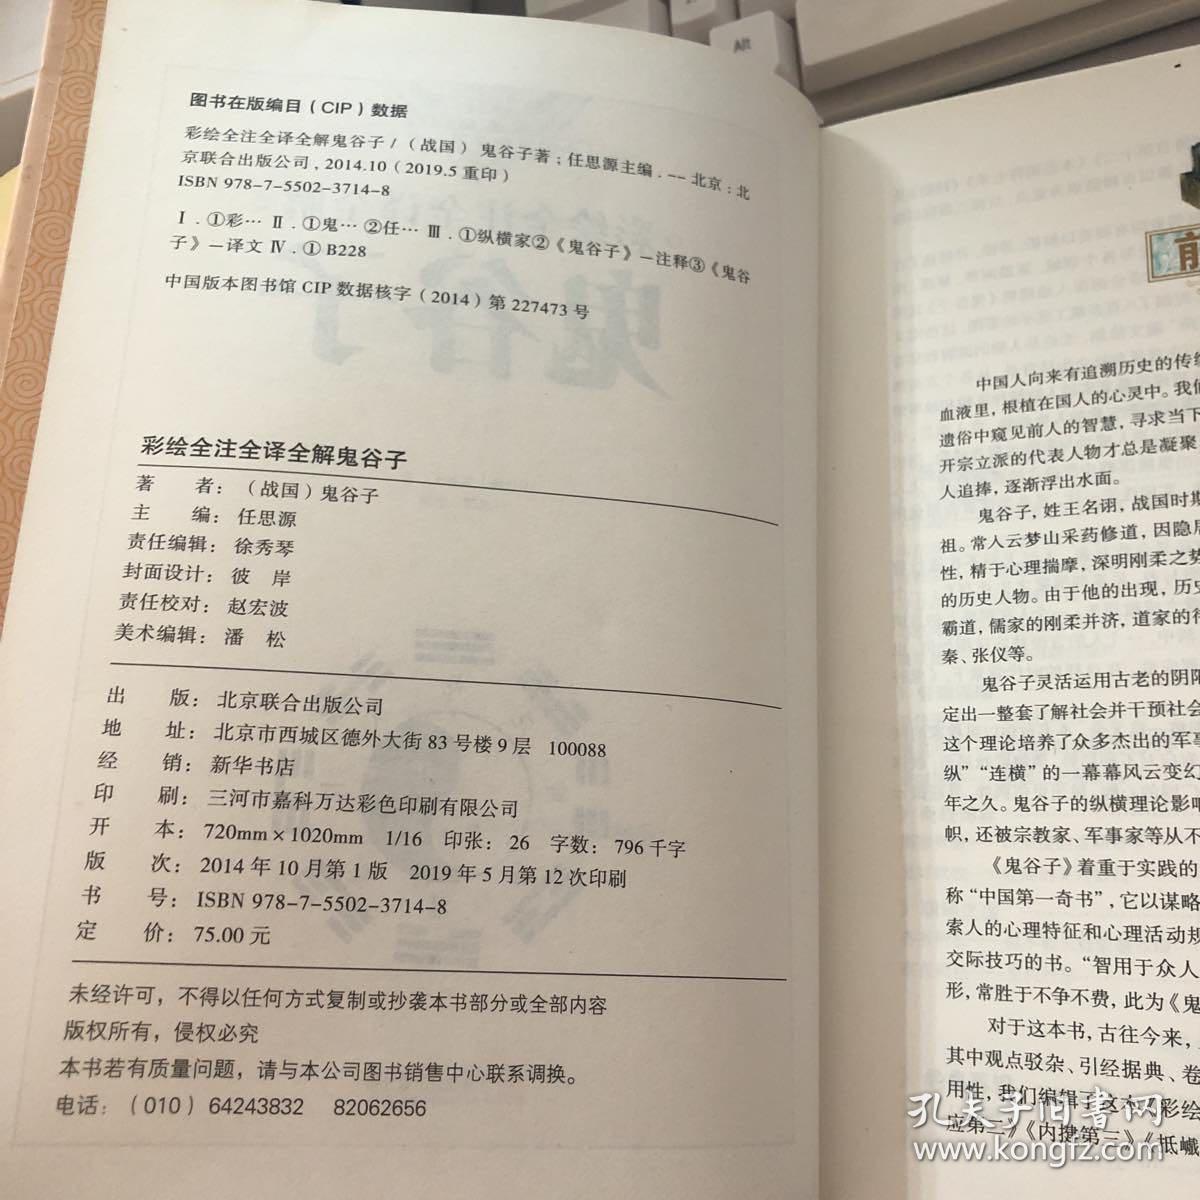 Alt
图书在版编目（CIP）数据
彩绘全注全译全解鬼谷子 / （战国）鬼谷子著；任思源主编．-- 北京：北
京联合出版公司，2014.10（2019.5 重印）
ISBN 978-7-5502-3714-8
Ⅰ．①彩… Ⅱ．①鬼… ②任… Ⅲ．①纵横家②《鬼谷子》—注释③《鬼谷
子》—译文 Ⅳ．① B228
中国版本图书馆 CIP 数据核字（2014）第 227473 号
彩绘全注全译全解鬼谷子
著　者：（战国）鬼谷子
主　编：任思源
责任编辑：徐秀琴
封面设计：彼　岸
责任校对：赵宏波
美术编辑：潘　松
出　版：北京联合出版公司
地　址：北京市西城区德外大街 83 号楼 9 层　100088
经　销：新华书店
印　刷：三河市嘉科万达彩色印刷有限公司
开　本：720mm×1020mm　1/16　印张：26　字数：796 千字
版　次：2014 年 10 月第 1 版　2019 年 5 月第 12 次印刷
书　号：ISBN 978-7-5502-3714-8
定　价：75.00 元
未经许可，不得以任何方式复制或抄袭本书部分或全部内容
版权所有，侵权必究
本书若有质量问题，请与本公司图书销售中心联系调换。
电话：（010）64243832　82062656
前
中国人向来有追溯历史的传统
血液里，根植在国人的心灵中。我们
遗俗中窥见前人的智慧，寻求当下
开宗立派的代表人物才总是凝聚
人追捧，逐渐浮出水面。
鬼谷子，姓王名诩，战国时期
祖。常入云梦山采药修道，因隐居
性，精于心理揣摩，深明刚柔之势
的历史人物。由于他的出现，历史
霸道，儒家的刚柔并济，道家的待
秦、张仪等。
鬼谷子灵活运用古老的阴阳
定出一整套了解社会并干预社会
这个理论培养了众多杰出的军事
纵”“连横”的一幕幕风云变幻
年之久。鬼谷子的纵横理论影响
帜，还被宗教家、军事家等从不
《鬼谷子》着重于实践的
称“中国第一奇书”，它以谋略
索人的心理特征和心理活动规
交际技巧的书。“智用于众人
形，常胜于不争不费，此为《鬼
对于这本书，古往今来，
其中观点驳杂、引经据典、卷
用性，我们编辑了这本《彩绘
应第二》《内揵第三》《抵巇
孔夫子旧书网
www.kongfz.com